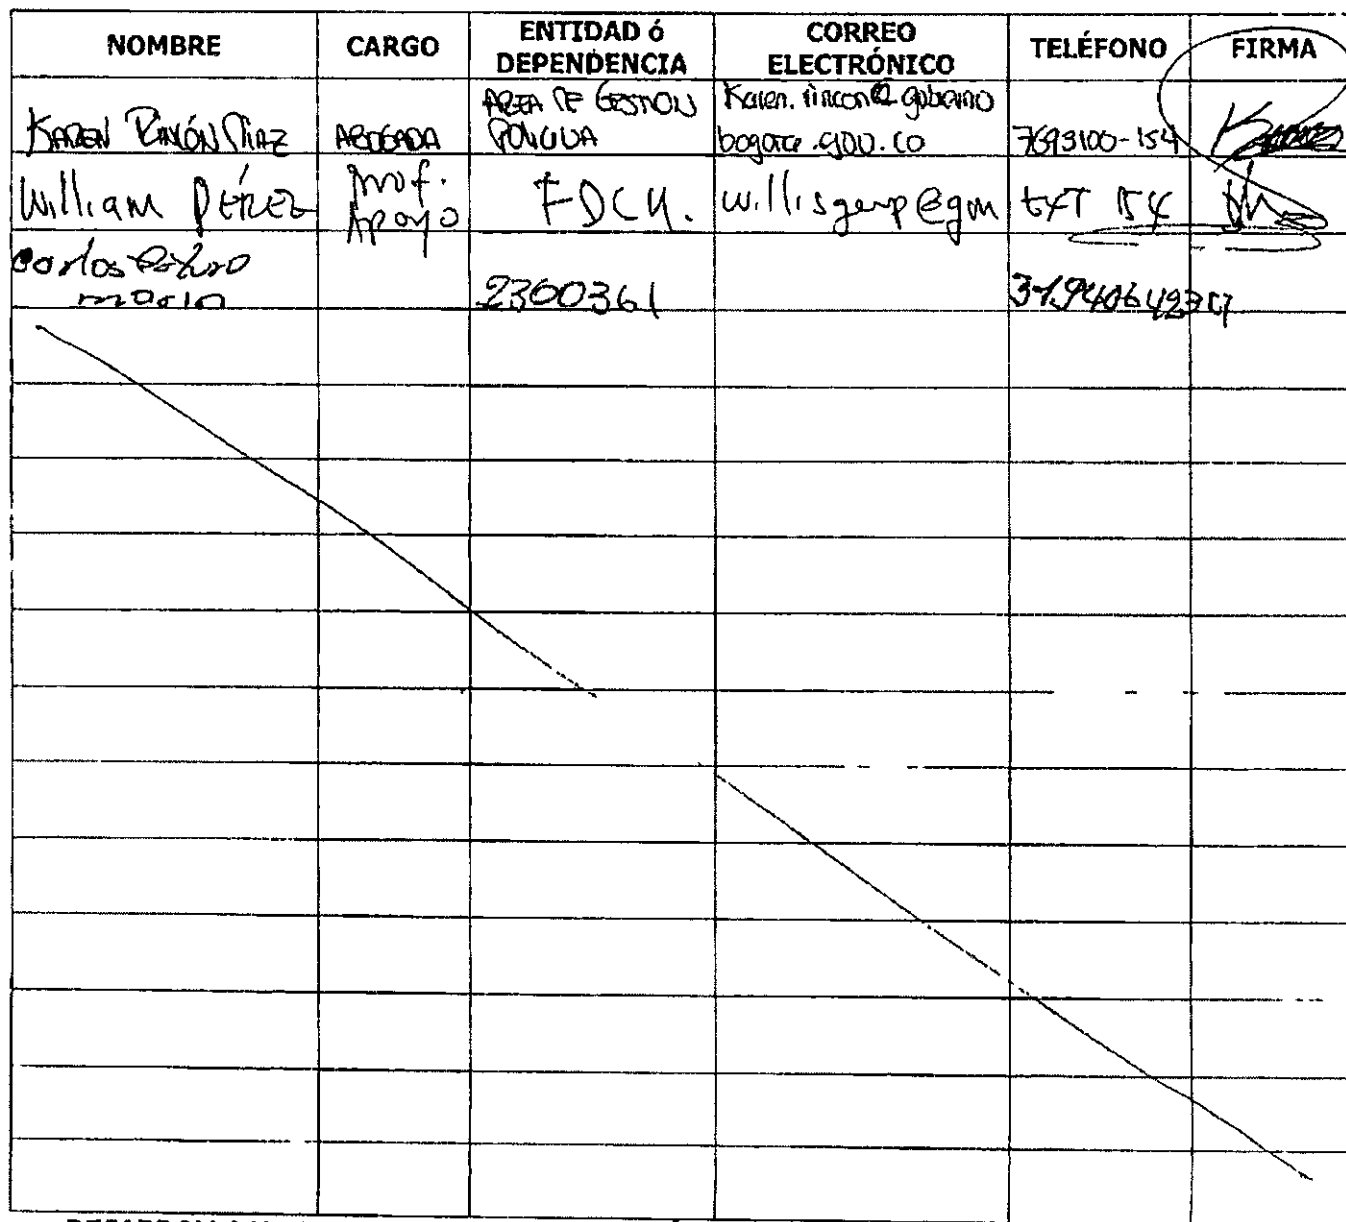 NOMBRE CARGO ENTIDAD ó DEPENDENCIA CORREO ELECTRÓNICO TELÉFONO FIRMA
KAREN RINCÓN DIAZ ABOGADA AREA DE GESTION POLICIVA Karen.rincon@gobierno bogota.gov.co 7693100-154
William PÉREZ Prof. Apoyo FDCH. willisgenp@gm EXT 154
Carlos Arturo 2300361